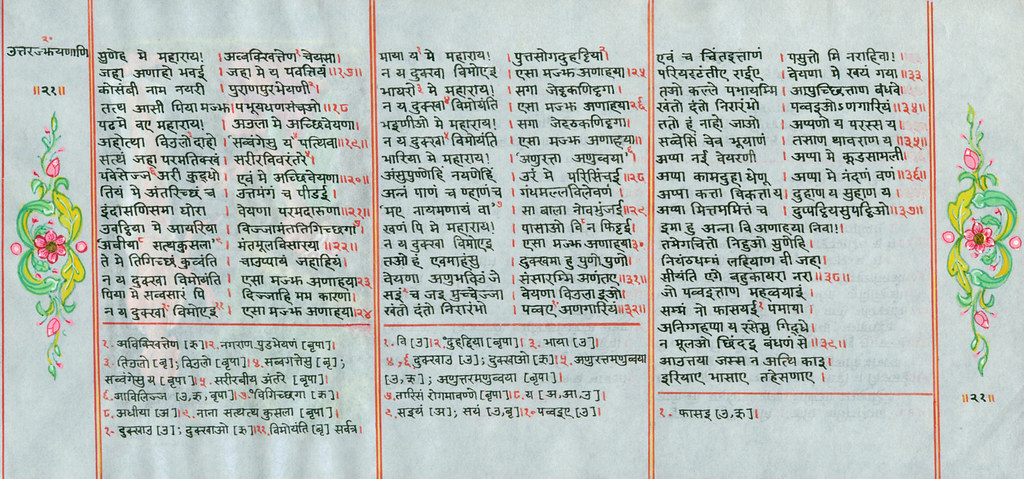 २०
उत्तरज्झयणाणि
॥२१॥
सुणेह मे महाराय! । अव्वक्खित्तेण१ चेयसा।
जहा अणाहो भवई । जहा मे य पवत्तियं॥१७॥
कोसंबी नाम नयरी । पुराणपुरभेयणी२।
तत्थ आसी पिया मज्झ। पभूयधणसंचओ॥१८
पढमे वए महाराय! । अउला मे अच्छिवेयणा।
अहोत्था विउलो३दाहो । सव्वगेसु य४ पत्थिवा॥१९॥
सत्थं जहा परमतिक्खं । सरीरविवरंतरे५।
पवेसेज्ज६ अरी कुद्धो । एवं मे अच्छिवेयणा॥२०॥
तियं मे अंतरिच्छं च । उत्तमंगं च पीडई।
इंदासणिसमा घोरा । वेयणा परमदारुणा॥२१॥
उवट्ठिया मे आयरिया । विज्जामंततिगिच्छगा७।
अबीया८ सत्थकुसला९ । मंतमूलविसारया॥२२॥
ते मे तिगिच्छं कुव्वंति । चाउप्पायं जहाहियं।
न य दुक्खा विमोयंति । एसा मज्झ अणाहया॥२३
पिया मे सव्वसारं पि । दिज्जाहि मम कारणा।
न य दुक्खा१० विमोएइ११ । एसा मज्झ अणाहया॥२४
१. अविक्खित्तेण [ऋ]।२.नगराण पुडभेयणं [बृपा]।
३. तिउलो [बृ]; विउलो [बृपा]।४. सव्वगत्तेसु [बृ];
सव्वंगेसु य [बृपा]।५. सरीरबीय अंतरे [बृपा]।
६.आविलिज्ज [उ,ऋ,बृपा]।७.विगिच्छगा [ऋ]।
८.अधीया [अ]।९.नाना सत्थत्थ कुसला [बृपा]।
१०.दुक्खाउ [उ]; दुक्खाओ [ऋ]।११.विमोयंति [बृ] सर्वत्र।
माया य१ मे महाराय! । पुत्तसोगदुहट्टिया२।
न य दुक्खा विमोएइ । एसा मज्झ अणाहया॥२५
भायरो३ मे महाराय! । सगा जेट्ठकणिट्ठगा।
न य दुक्खा४ विमोयंति । एसा मज्झ अणाहया२६
भइणीओ मे महाराय! । सगा जेट्ठकणिट्ठगा।
न य दुक्खा५ विमोयंति । एसा मज्झ अणाहया॥
भारिया मे महाराय! । अणुरत्ता अणुव्वया६।
अंसुपुण्णेहिं नयणेहिं । उरं मे परिसिंचई॥२८
अन्नं पाणं च ण्हाणं च । गंधमल्लविलेवणं।
'मए नायमणायं वा'७ । सा बाला नोवभुंजई॥२९
खणं पि मे महाराय! । पासाओ वि८ न फिट्टई।
न य दुक्खा विमोएइ । एसा मज्झ अणाहया३०
तओ हं एवमाहंसु । दुक्खमा हु पुणो पुणो।
वेयणा अणुभविउं जे । संसारम्मि अणंतए॥३१॥
सइं९ च जइ मुच्चेज्जा । वेयणा विउला इओ।
खंतो दंतो निरारंभो । पव्वए१०अणगारियं॥३२॥
१. वि [उ]।२.दुहद्दिया [बृपा]। ३.भाया [उ]।
४,५.दुक्खाउ [उ]; दुक्खाओ [ऋ]।६.अणुरत्तमणुव्वया
[उ,ऋ]; अणुत्तरमणुव्वया [बृपा]।
७.तारिसं रोगमावण्णे [बृपा]।८.य [अ,आ,उ]।
९.सइयं [अ]; सयं [उ,बृ]।१०.पव्वइए [उ]।
एवं च चिंतइत्ताणं । पसुत्तो मि नराहिवा!।
परियट्टंतीए राईए । वेयणा मे खयं गया॥३३
तओ कल्ले पभायम्मि । आपुच्छित्ताण बंधवे।
खंतो दंतो निरारंभो । पव्वइओऽणगारियं॥३४॥
ततो हं नाहो जाओ । अप्पणो य परस्स य।
सव्वेसिं चेव भूयाणं । तसाण थावराण य॥३५॥
अप्पा नई वेयरणी । अप्पा मे कूडसामली।
अप्पा कामदुहा धेणू । अप्पा मे नंदणं वणं॥३६॥
अप्पा कत्ता विकत्ता य। दुहाण य सुहाण य।
अप्पा मित्तममित्तं च । दुप्पट्ठियसुपट्ठिओ॥३७॥
इमा हु अन्ना वि अणाहया निवा!।
तमेगचित्तो निहुओ सुणेहि।
नियंठधम्मं लहियाण वी जहा।
सीयंति एगे बहुकायरा नरा॥३८॥
जो पव्वइत्ताण महव्वयाइं।
सम्मं नो फासयई१ पमाया।
अनिग्गहप्पा य रसेसु गिद्धे।
न मूलओ छिंदइ बंधणं से॥३९॥
आउत्तया जस्स न अत्थि काइ।
इरियाए भासाए तहेसणाए।
१. फासइ [उ,ऋ]।
॥२१॥